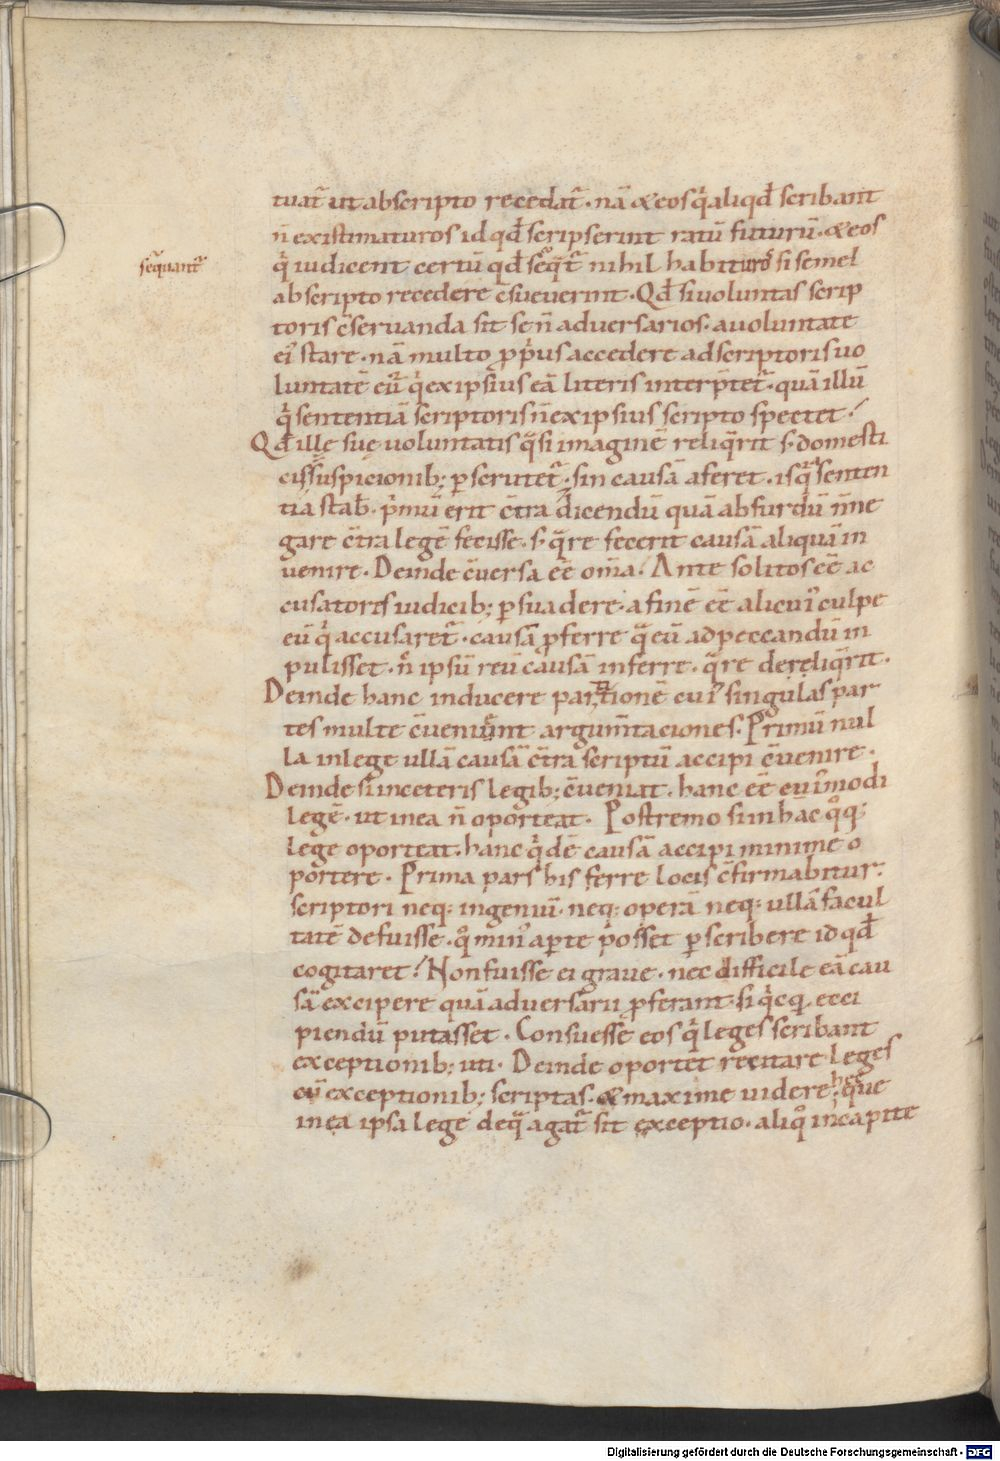 tuat̃ ut abscripto recedat̃ · nã & eos q̓ aliqđ scribant
n̄ existimaturos id qđ scripserint ratũ futurũ · & eos
seq̃uant̃
q̓ iudicent certũ qđ seq̃t̃ nihil habituros si semel
abscripto recedere c̄sueverint · Qđ si voluntas scrip
toris c̄servanda sit se n̄ adversarios · a voluntate
ei᾿ stare · nã multo ꝓp̓us accedere ad scriptoris uo
luntatẽ eũ q̓ ex ipsius eã literis interp̃tet̃ · quã illũ
q̓ sententiã scriptoris n̄ ex ipsius scripto spectet ·
Qđ ille suę voluntatis q̃si imaginẽ reliq̃rit s· domesti
cis suspicionib; ꝑscrutet̃ · sin causã aferet · is q̓ senten
tiã stab̄ · p̓mũ erit c̄tra dicendũ quã absurdũ n̄ ne
gare c̄tra legẽ fecisse · s· q̃re fecerit causã aliquã in
venire · Deinde c̄versa eẽ om̃a · Ante solitos eẽ ac
cusatores iudicib; ꝑsuadere · afinẽ eẽ alicui᾿ culpe
eũ q̓ accusaret̃ · causã ꝓferre q̃ eũ ad peccandũ in
pulisset · n̄ ipsũ reũ causã inferre · q̃re dereliq̃rit ·
Deinde hanc inducere partitionẽ cui᾿ singulas par
tes multe c̄veniunt argum̃taciones · Primũ nul
la in lege ullã causã c̄tra scriptũ accipi c̄venire ·
Deinde si in ceteris legib; c̄veniat · hanc eẽ eui᾿modi
legẽ · ut in ea n̄ oporteat · Postremo si in hac q̊q;
lege oporteat · hanc q̓dẽ causã accipi minime o
portere · Prima pars his ferre locis c̄firmabitur ·
scriptori neq; ingeniũ · neq; operã neq; ullã facul
tatẽ defuisse · q̊ min᾿ aꝑte posset ꝑscribere id qđ
cogitaret · Non fuisse ei grave · nec difficile eã cau
sã excipere quã adversarii ꝓferant · si q̓cq̃ exci
piendũ putasset · Consuesse eos q̓ leges scribant
exceptionib; uti · Deinde oportet recitare leges
cũ exceptionib; scriptas · & maxime videre · hec que
in ea ipsa lege de q̃ agat̃ sit exceptio · aliq̊ in capite
Digitalisierung gefördert durch die Deutsche Forschungsgemeinschaft - DFG